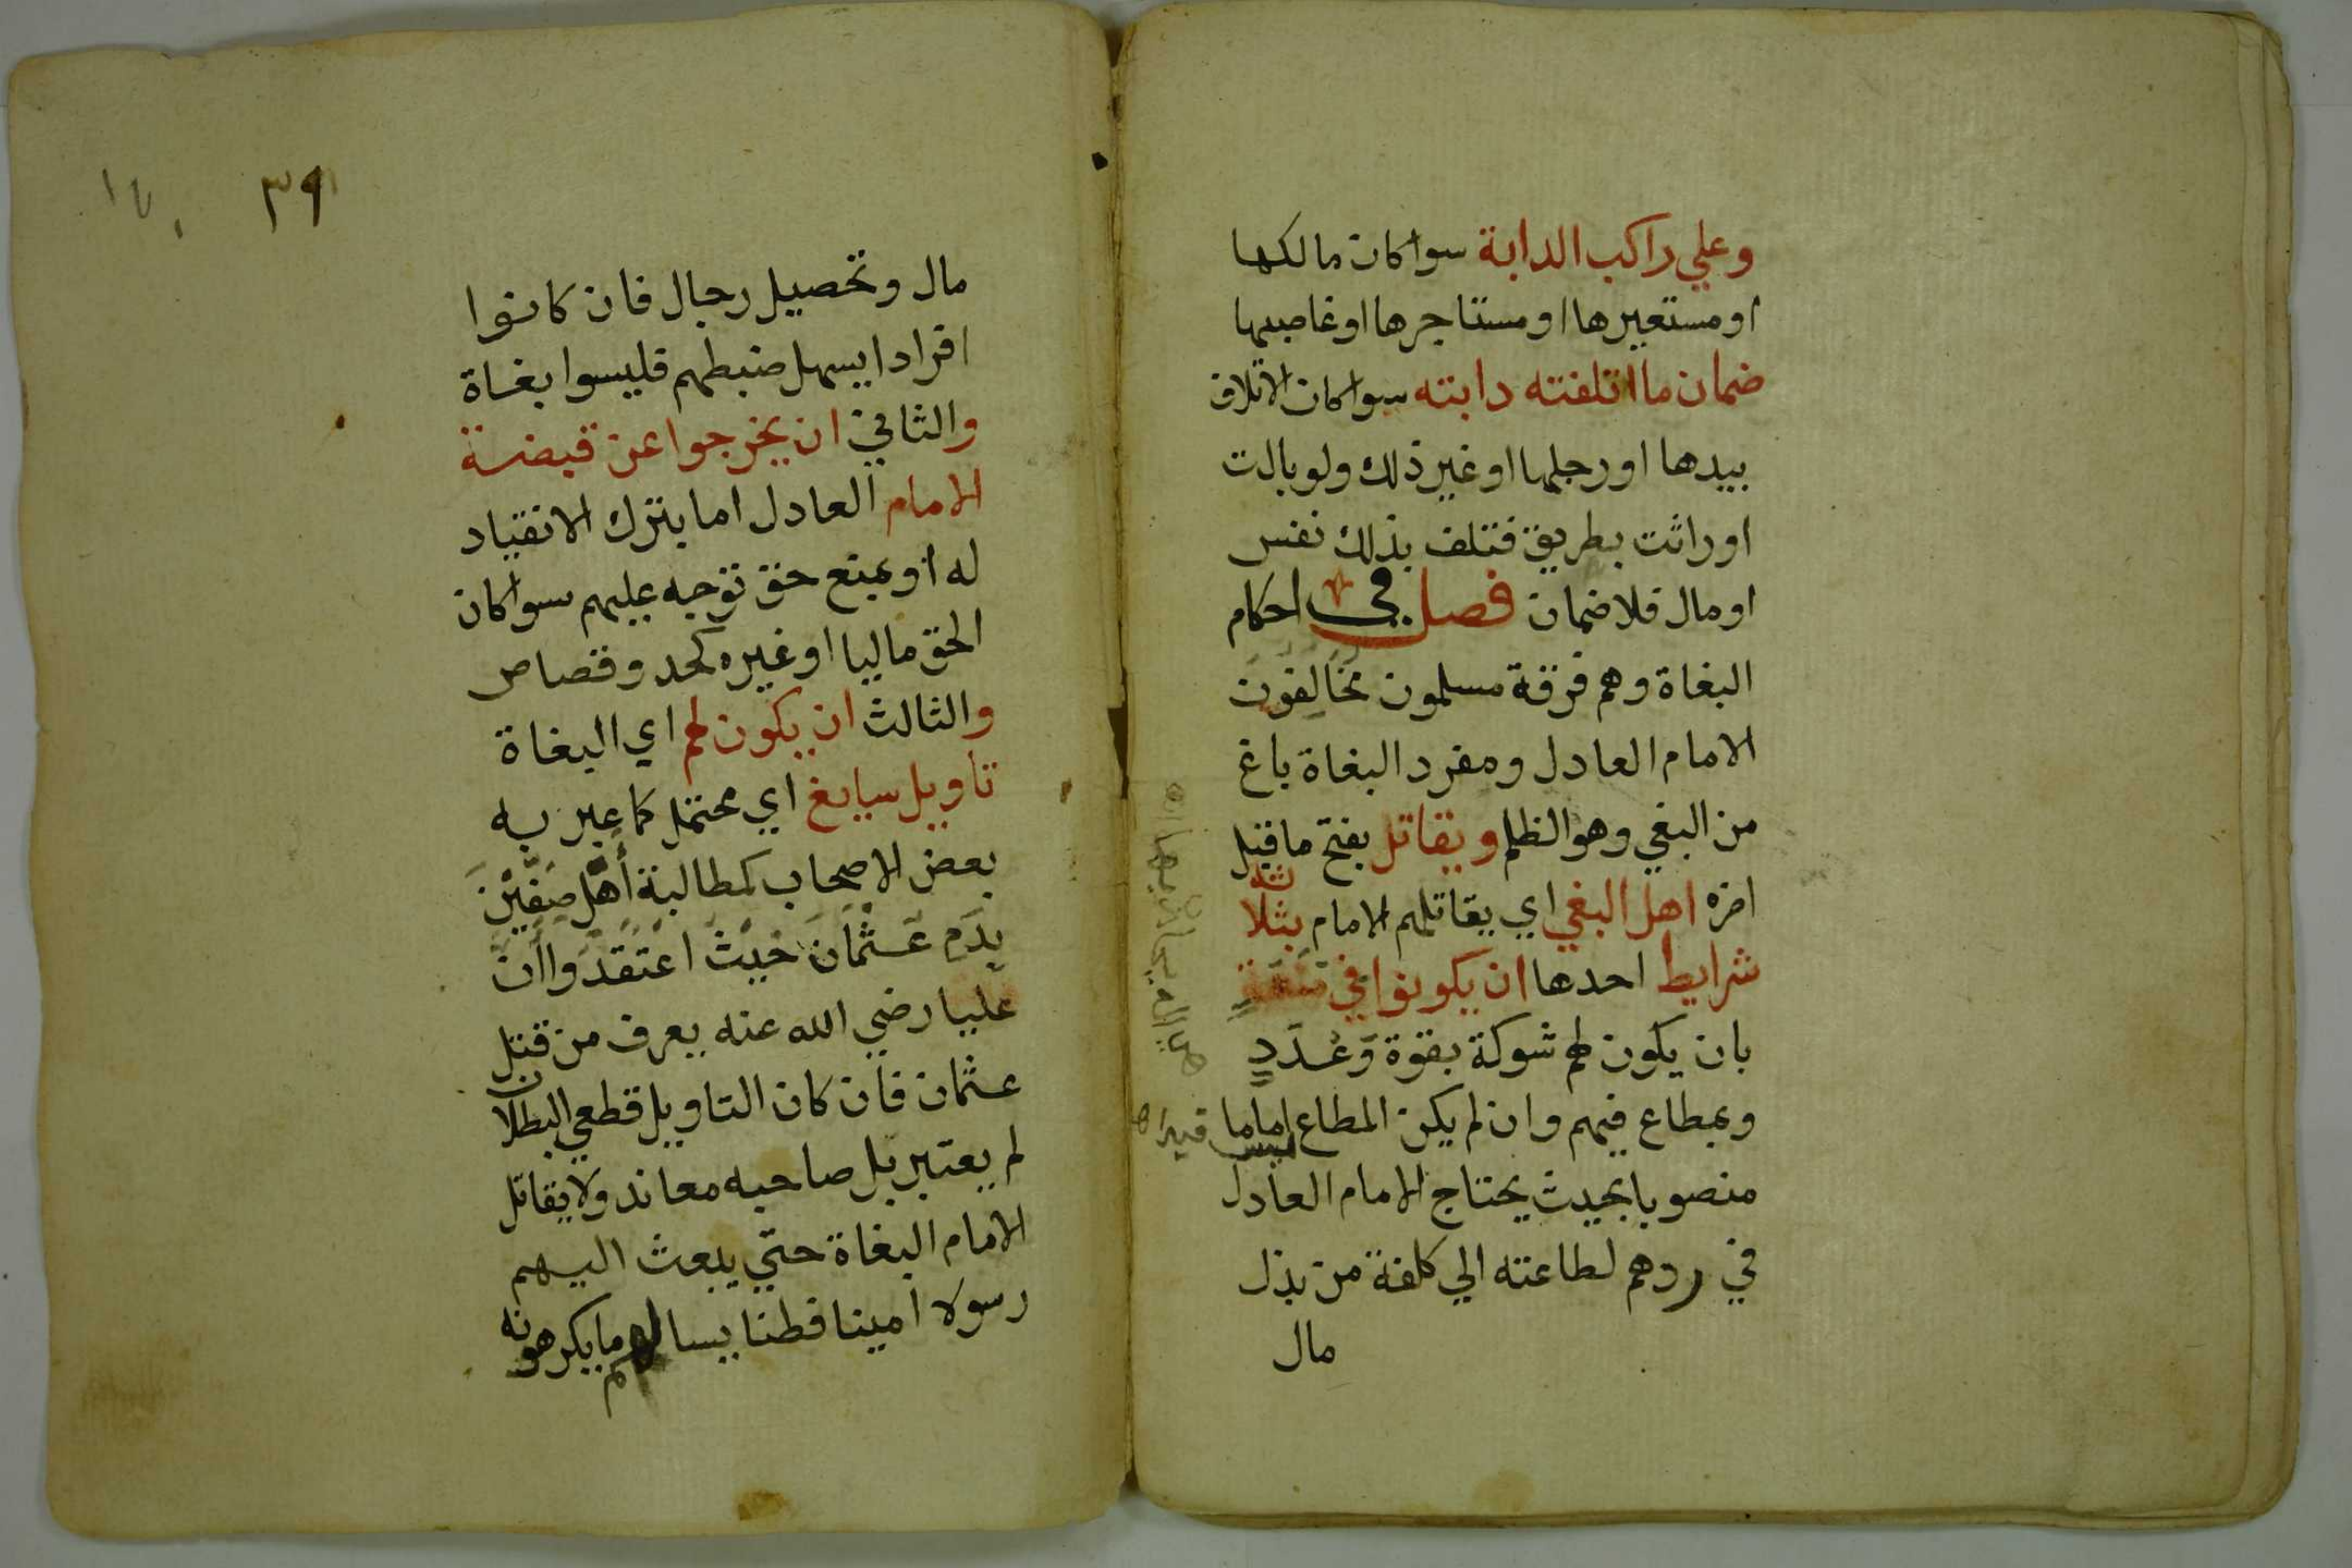 وعلي راكب الدابة سوا كان مالكها
او مستعيرها او مستاجرها او غاصبها
ضمان ما اتلفته دابته سوا كان الاتلاف
بيدها او رجلها او غير ذلك ولو بالت
او راثت بطريق فتلف بذلك نفس
او مال فلا ضمان فصل في احكام
البغاة وهم فرقة مسلمون مخالفون
الامام العادل ومفرد البغاة باغ
من البغي وهو الظلم ويقاتل بفتح ما قبل
اخره اهل البغي اي يقاتلهم الامام بثلاثه
شرايط احدها ان يكونوا في منعة
بان يكون لهم شوكة بقوة وَعَدَدٍ
وبمطاع فيهم وان لم يكن المطاع اماما
منصوبا بحيث يحتاج الامام العادل
في ردهم لطاعته الي كلفة من بذل
مال
٣٩
مال وتحصيل رجال فان كانوا
افرادا يسهل ضبطهم فليسوا بغاة
والثاني ان يخرجوا عن قبضة
الامام العادل اما بترك الانقياد
له او بمنع حق توجه عليهم سوا كان
الحق ماليا او غيره كحد وقصاص
والثالث ان يكون لهم اي البغاة
تاويل سايغ اي محتمل كما عبر به
بعض الاصحاب كمطالبة أَهْل صِفِّيْنَ
بِدَمِ عَثْمَانَ حَيْثُ اعْتَقَدُوا أَنَّ
عليا رضي الله عنه يعرف من قتل
عثمان فان كان التاويل قطعي البطلان
لم يعتبر بل صاحبه معاند ولا يقاتل
الامام البغاة حتي يبعث اليهم
رسولا امينا فطنا يسالهم ما يكرهونه